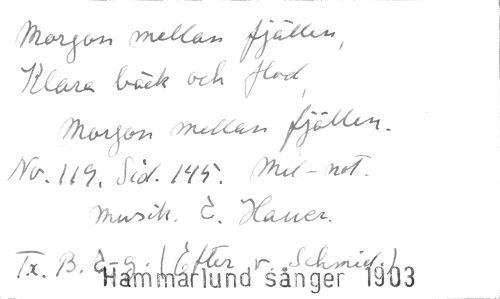 Morgon mellan fjällen,
Klara bäck och flod,
Morgon mellan fjällen.
No. 119. Sid. 145. Mel-not.
Musik. E. Hauer.
Tx. B. E-g. (Efter v. Schmid.)
Hammarlund sånger 1903